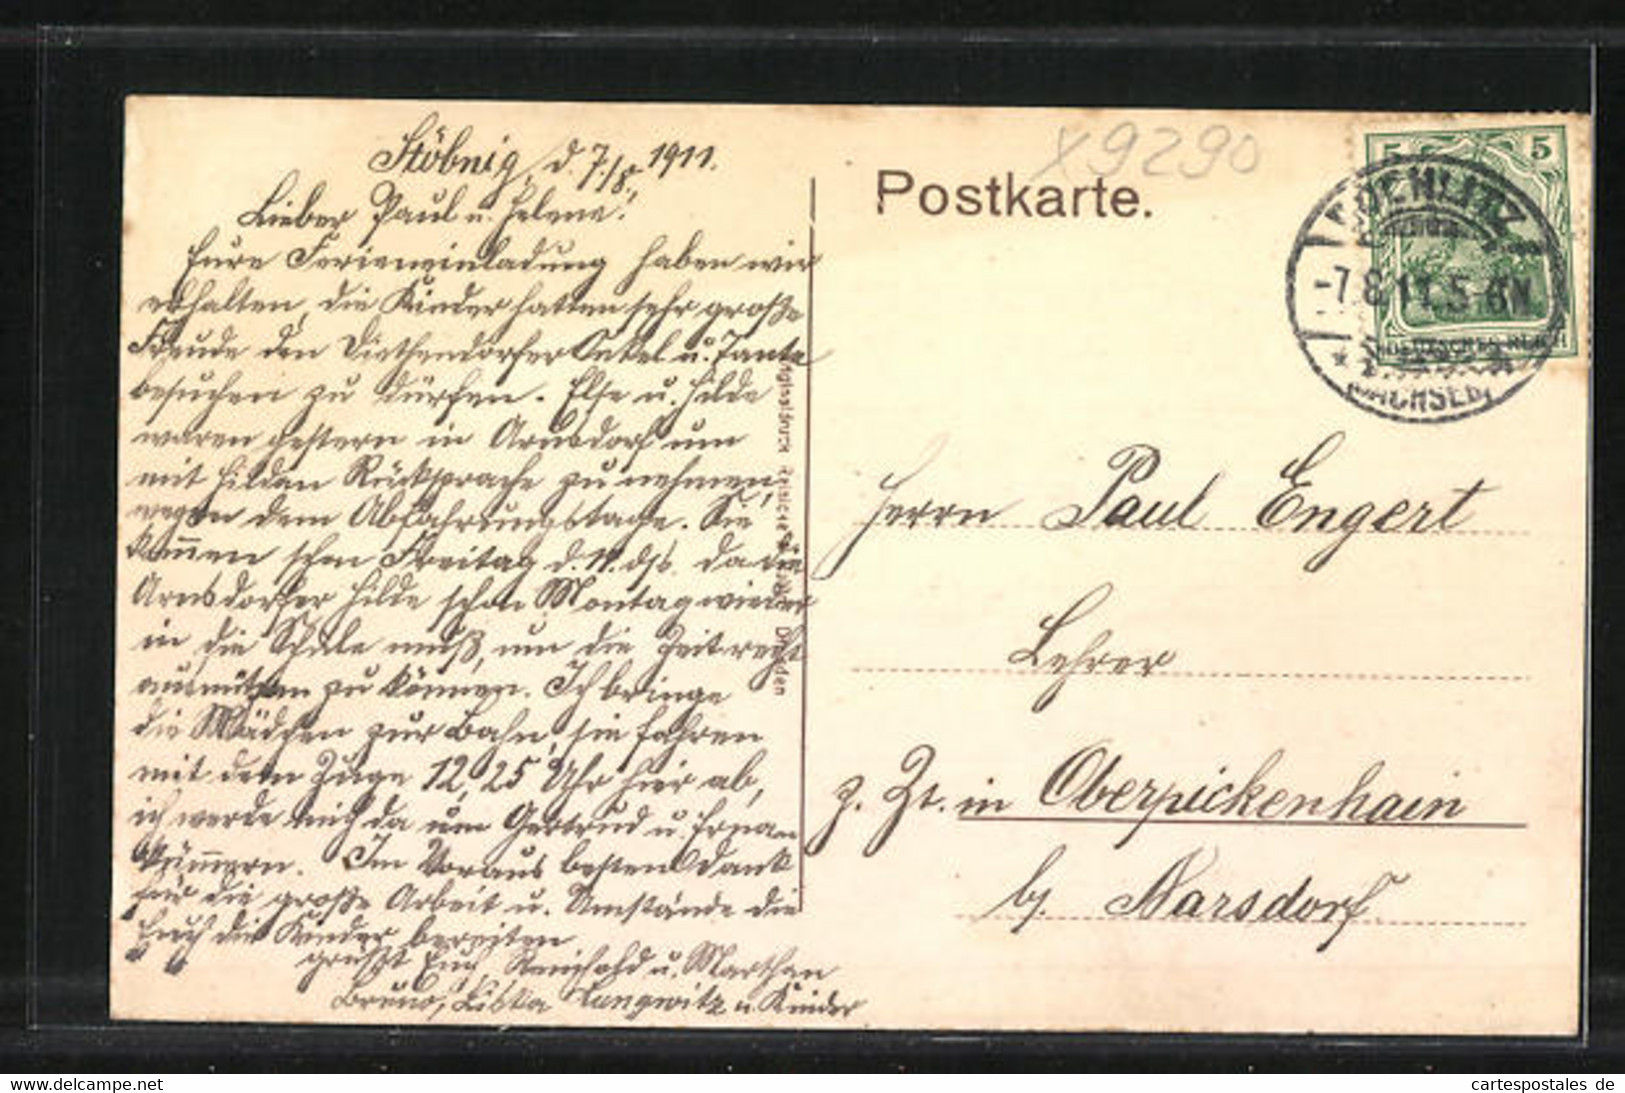 Stöbnig, d. 7./8. 1911.
Lieber Paul u. Helene!
Eure Ferieneinladung haben wir
erhalten, die Kinder hatten sehr große
Freude den Diethendorfer Onkel u. Tante
besuchen zu dürfen. Else u. Hilde
waren gestern in Arnsdorf um
mit Hildan Rücksprache zu nehmen,
wegen dem Abfahrungstage. Sie
kommen schon Freitag d. 11. ds. da die
Arnsdorfer Hilde schon Montag wieder
in die Schule muß, um die Zeit recht
ausnützen zu können. Ich bringe
die Mädchen zur Bahn, sie fahren
mit dem Zuge 12,25 Uhr hier ab,
ich werde mich da um Gertrud u. Ernan
kümmern. Im Voraus besten Dank
für die große Arbeit u. Umstände die
Euch die Kinder bereiten
grüßt Euch Reinhold u. Marthan
Bruno, Langwitz u Kinder
Postkarte.
X9290
5 5
DEUTSCHES REICH
ROCHLITZ
-7.8.11. 5-6N
(SACHSEN)
Herrn Paul Engert
Lehrer
z. Zt. in Oberpickenhain
b. Narsdorf
Hansa-Live.de
cartespostales de